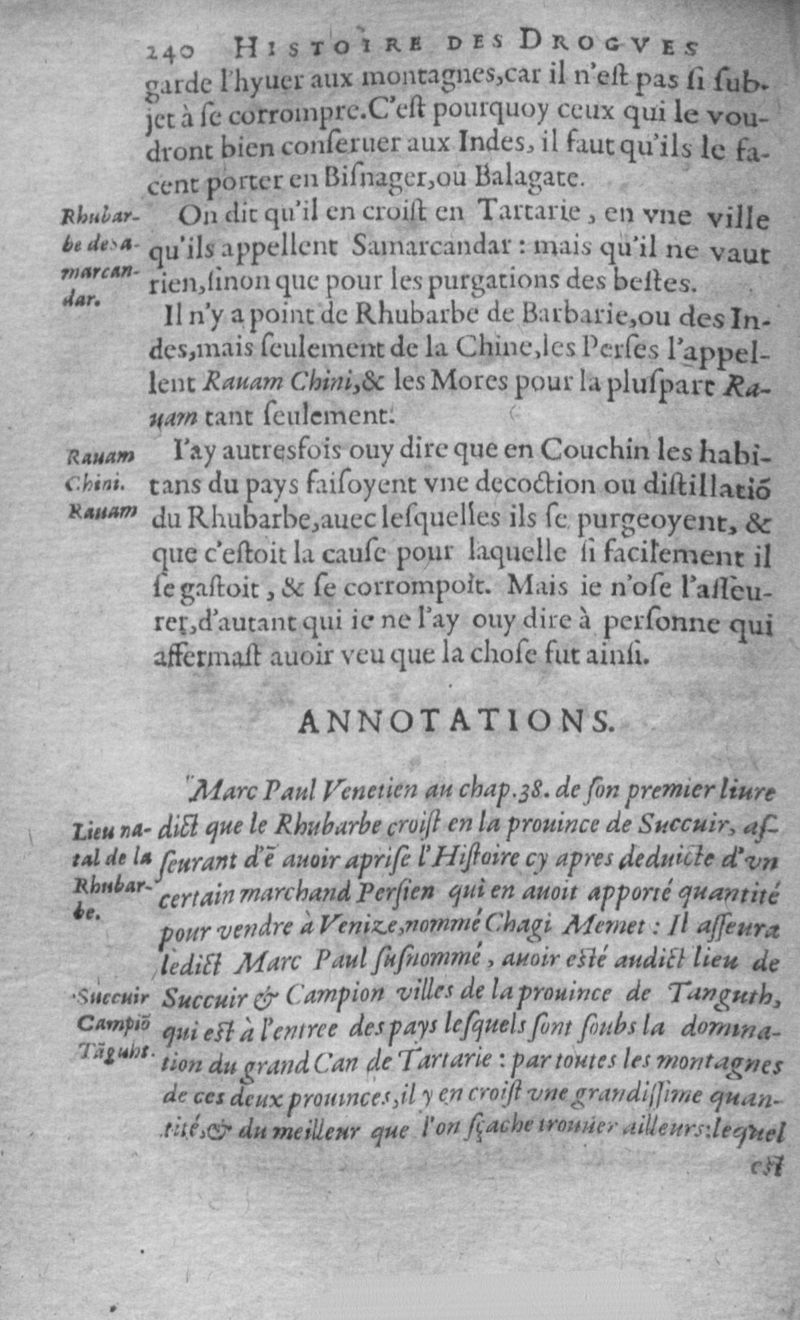 240 HISTOIRE DES DROGVES
garde l'hyuer aux montagnes,car il n'eſt pas ſi ſub-
jet à ſe corrompre.C'eſt pourquoy ceux qui le vou-
dront bien conſeruer aux Indes, il faut qu'ils le fa-
cent porter en Biſnager,ou Balagate.
Rhubar-
be de sa-
marcan-
dar.
On dit qu'il en croiſt en Tartarie, en vne ville
qu'ils appellent Samarcandar : mais qu'il ne vaut
rien,ſinon que pour les purgations des beſtes.
Il n'y a point de Rhubarbe de Barbarie,ou des In-
des,mais ſeulement de la Chine,les Perſes l'appel-
lent Rauam Chini,& les Mores pour la pluſpart Ra-
uam tant ſeulement.
Rauam
Chini.
Rauam
I'ay autresfois ouy dire que en Couchin les habi-
tans du pays faiſoyent vne decoction ou diſtillatiõ
du Rhubarbe,auec leſquelles ils ſe purgeoyent, &
que c'eſtoit la cauſe pour laquelle ſi facilement il
ſe gaſtoit, & ſe corrompoit. Mais ie n'oſe l'aſſeu-
rer,d'autant qui ie ne l'ay ouy dire à perſonne qui
affermaſt auoir veu que la choſe fut ainſi.
ANNOTATIONS.
Marc Paul Venetien au chap.38. de ſon premier liure
Lieu na-
tal de la
Rhubar-
be.
dict que le Rhubarbe croiſt en la prouince de Succuir, aſ-
ſeurant d'ẽ auoir apriſe l'Hiſtoire cy apres deduicte d'vn
certain marchand Perſien qui en auoit apporté quantité
pour vendre à Venize,nommé Chagi Memet : Il aſſeura
ledict Marc Paul ſuſnommé, auoir eſté audict lieu de
Succuir
Campiõ
Tãguht.
Succuir & Campion villes de la prouince de Tanguth,
qui eſt à l'entree des pays leſquels ſont ſoubs la domina-
tion du grand Can de Tartarie : par toutes les montagnes
de ces deux prouinces,il y en croiſt vne grandiſſime quan-
tité,& du meilleur que l'on ſçache trouuer ailleurs:lequel
eſt